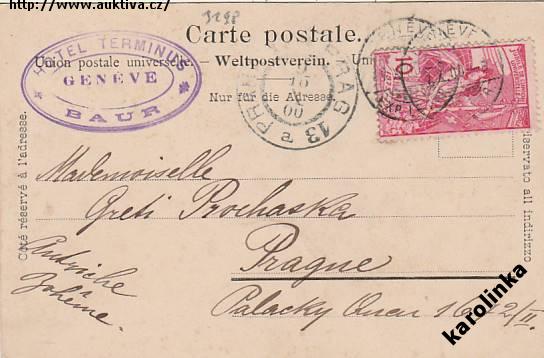 http://www.auktiva.cz/
3298
Carte postale.
Union postale universelle. — Weltpostverein.
Nur für die Adresse.
HOTEL TERMINUS
GENÈVE
BAUR
PRAG
13 a
15
00
GENÈVE
10
Côté réservé à l'adresse.
riservato all indirizzo
Mademoiselle
Greti Prochaska
Prague
Palacky Quai 16 2/II
Autriche
Bohême.
karolinka